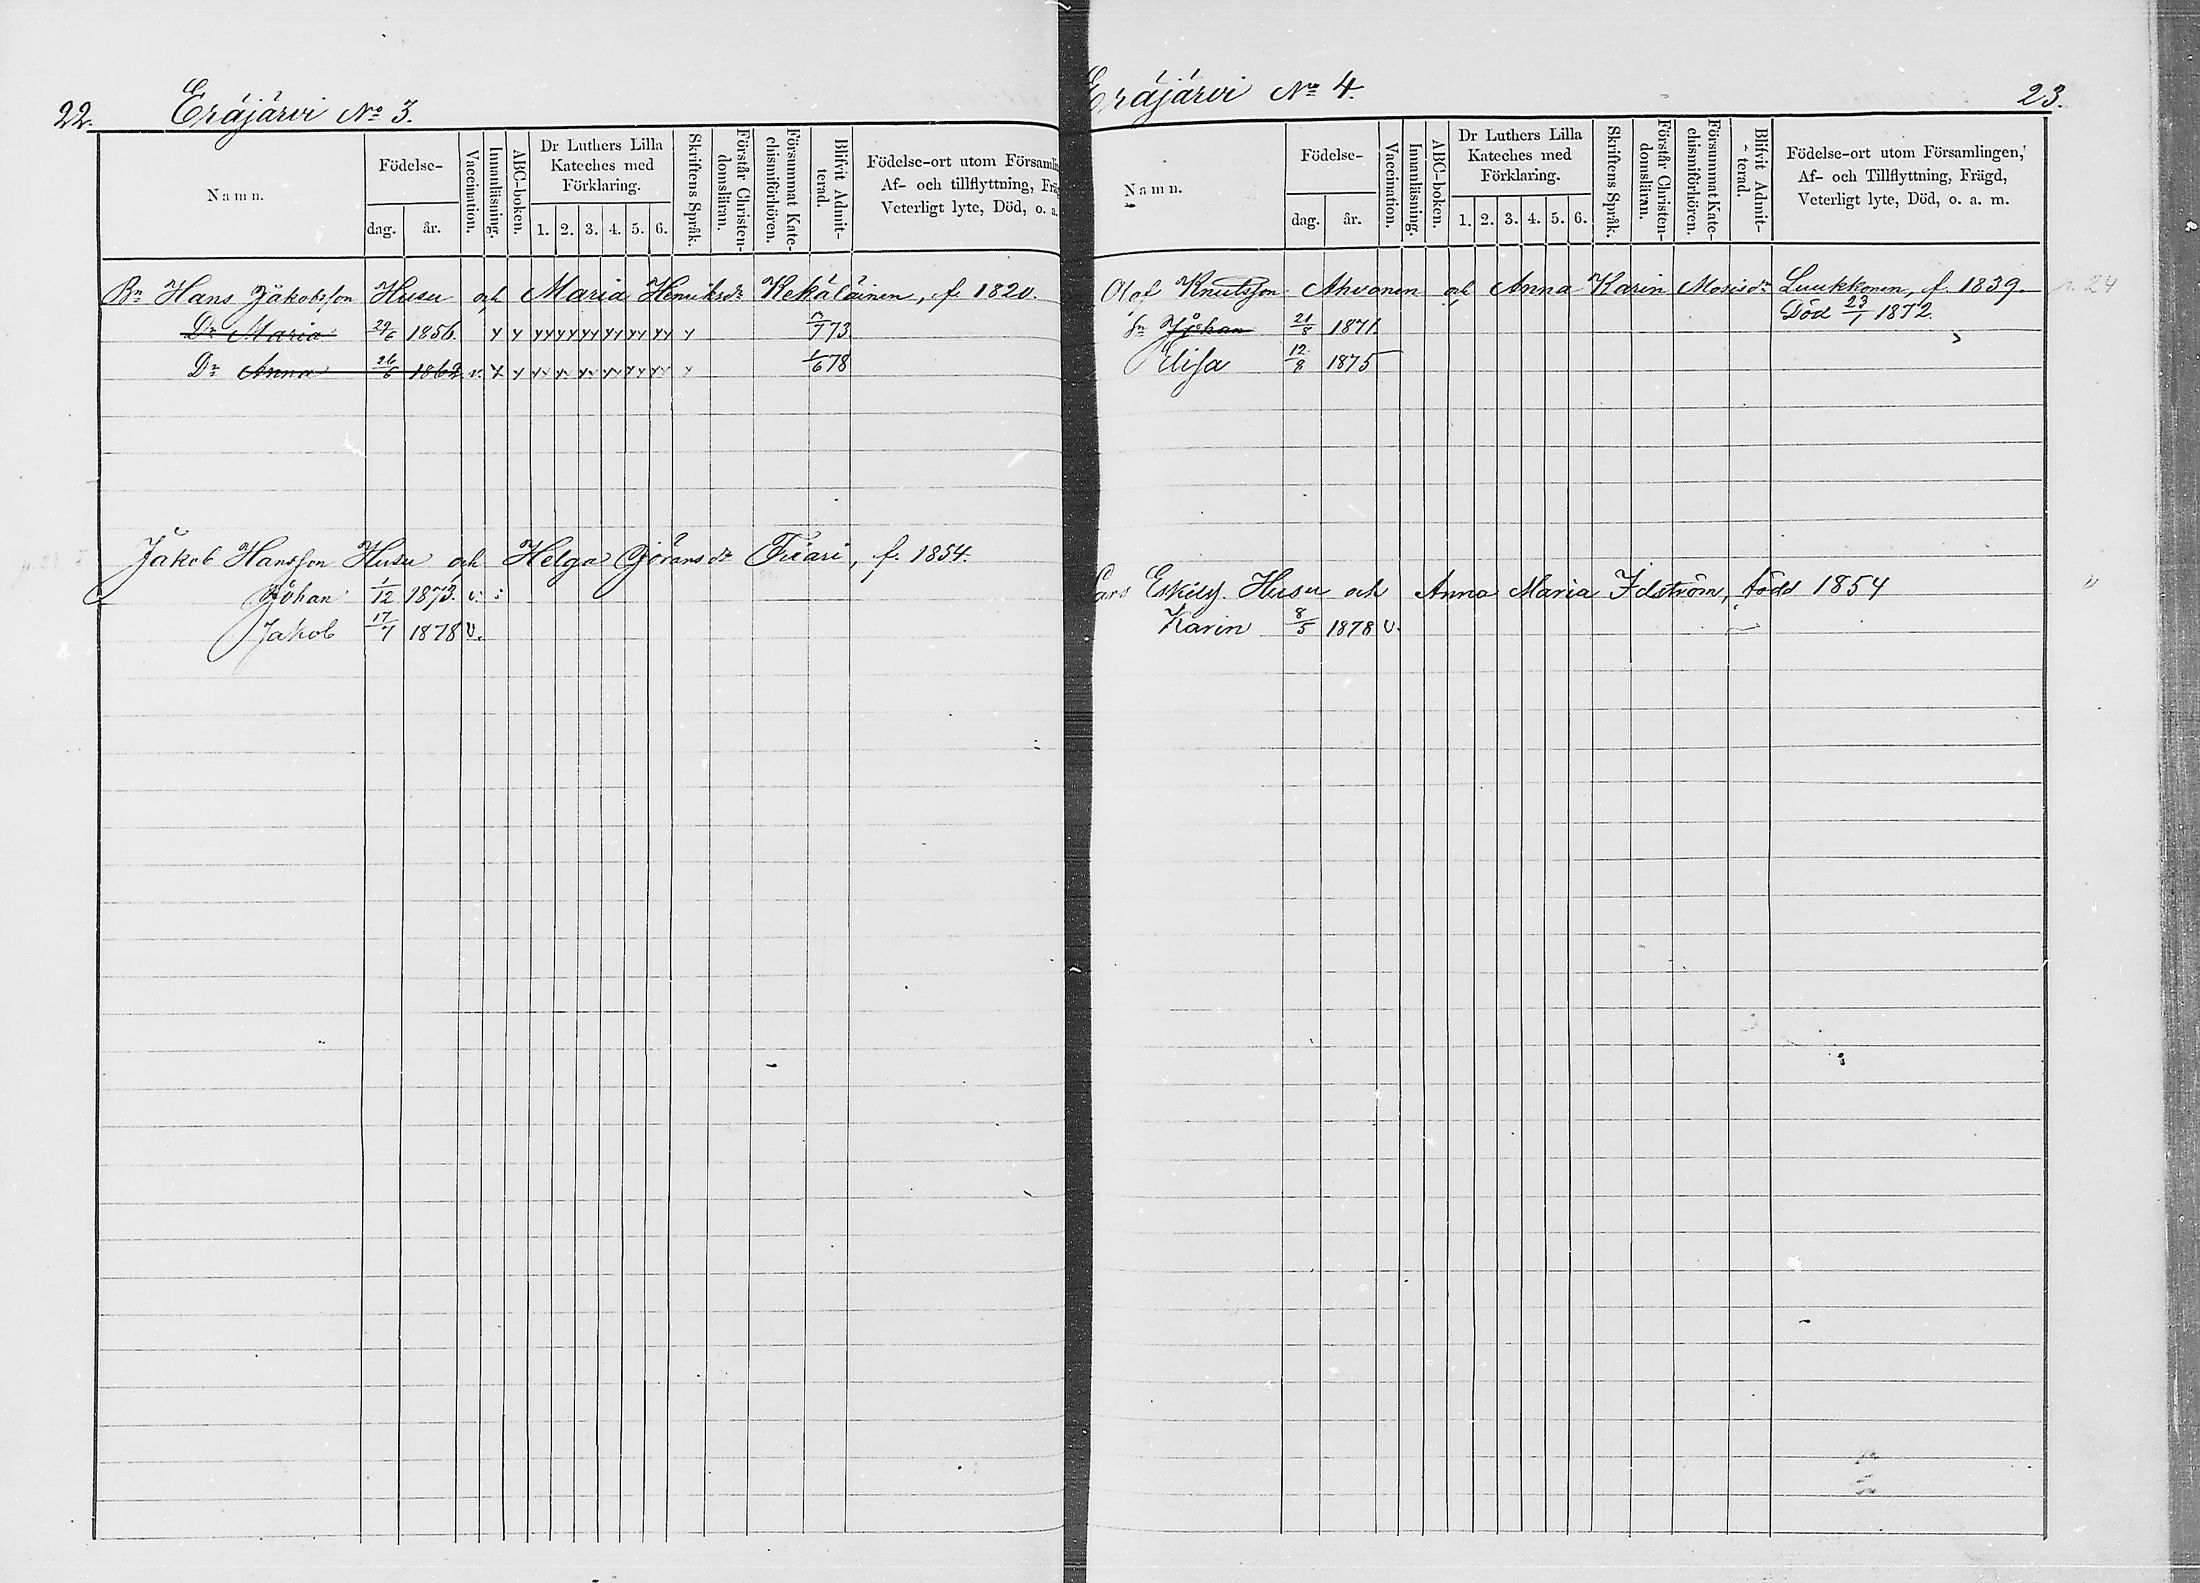 22. Eräjärvi No 3.
Namn. Födelse- dag. år. Vaccination. Innanläsning. ABC-boken. Dr Luthers Lilla Kateches med Förklaring. 1. 2. 3. 4. 5. 6. Skriftens Språk. Förstår Christendomsläran. Försummat Katechismiförhören. Blifvit Admitterad. Födelse-ort utom Församlin Af- och tillflyttning, Fräg Veterligt lyte, Död, o. a.
Bn Hans Jakobsson Husu och Maria Henriksdr Kekäläinen, f. 1820.
Dr Maria 29/6 1856. 73.
Dr Anna 26/6 1862 v. 1/6 78
Jakob Hansson Husu och Helga Göransdr Tiari, f. 1854.
Johan 1/12 1873. v.
Jakob 17/7 1878 v.
Eräjärvi No 4. 23.
Namn. Födelse- dag. år. Vaccination. Innanläsning. ABC-boken. Dr Luthers Lilla Kateches med Förklaring. 1. 2. 3. 4. 5. 6. Skriftens Språk. Förstår Christendomsläran. Försummat Katechismiförhören. Blifvit Admitterad. Födelse-ort utom Församlingen, Af- och Tillflyttning, Frägd, Veterligt lyte, Död, o. a. m.
Olof Knutsson Ahvonen och Anna Karin Mosisdr Luukkonen, f. 1839.
sn Johan 21/8 1871. Död 23/1 1872.
Elisa 12/8 1875
Lars Eskilss. Husu och Anna Maria Idström, född 1854
Karin 8/5 1878 v.